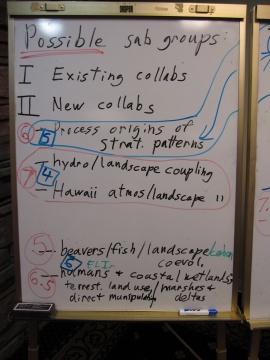 Possible sub groups:
I Existing collabs
II New collabs
6 15 - Process origins of
strat. patterns
7 4 - hydro/landscape coupling
- Hawaii atmos/landscape "
5 - beavers/fish/landscape
6 coevol.
6.5 - humans + coastal wetlands,
terrest. land use/marshes &
direct deltas